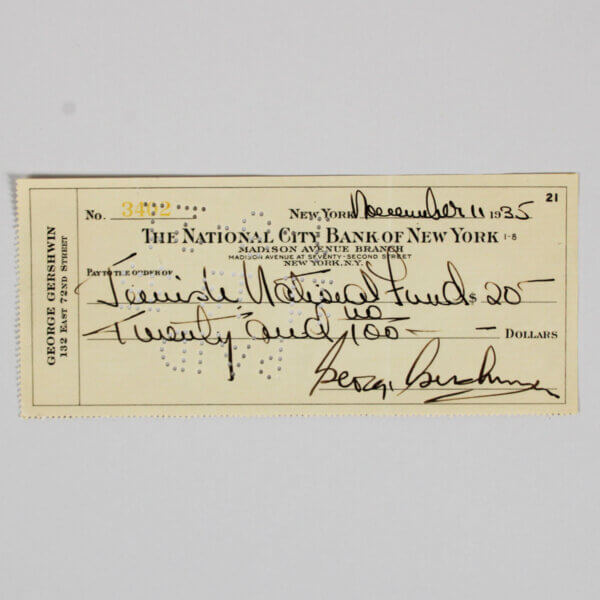 21
No. 3402 NEW YORK November 11 1935
THE NATIONAL CITY BANK OF NEW YORK 1-8
MADISON AVENUE BRANCH
MADISON AVENUE AT SEVENTY-SECOND STREET
NEW YORK, N.Y.
PAY TO THE ORDER OF
Jewish National Fund $ 20
Twenty and no/100 — — DOLLARS
George Gershwin
GEORGE GERSHWIN
132 EAST 72ND STREET